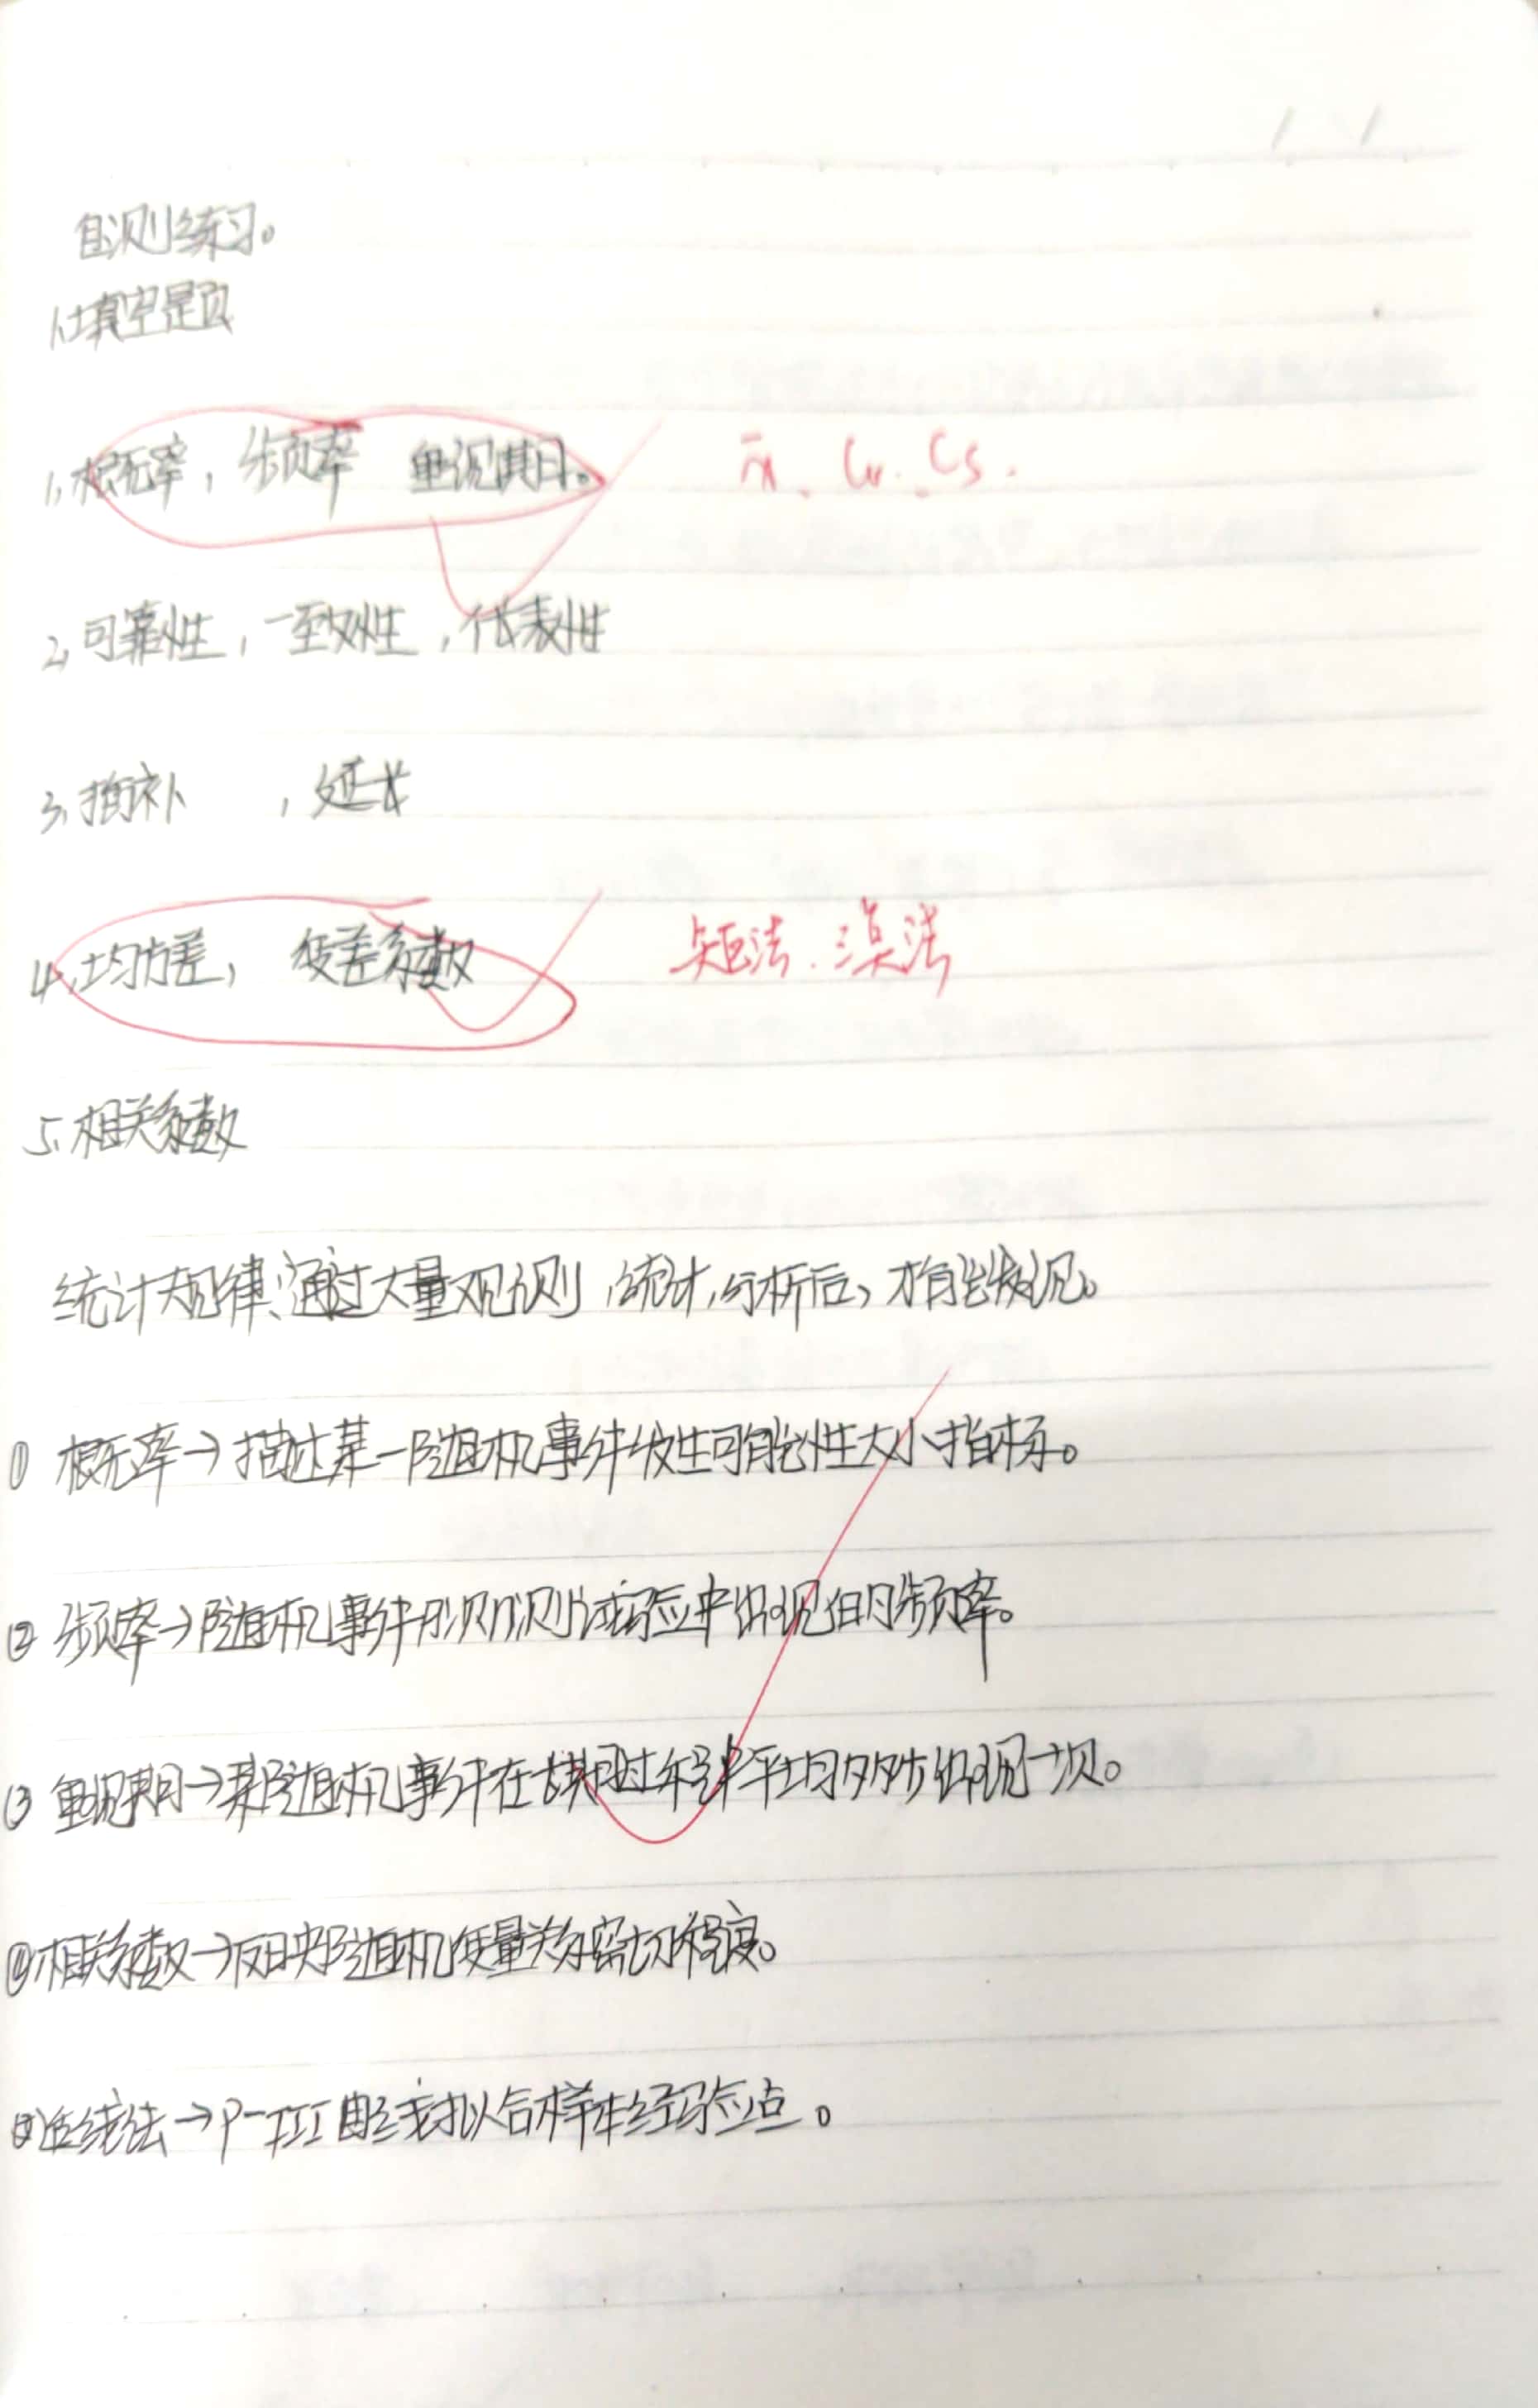 自测练习。
1.填空题
1.概率,频率 重现期。 x̄、Cv、Cs.
2.可靠性,一致性,代表性
3.插补 ,延长
4.均方差,变差系数 矩法、三点法
5.相关系数
统计规律:通过大量观测,统计,分析后,才能发现。
① 概率→描述某一随机事件发生可能性大小指标。
② 频率→随机事件n次测试验中出现的频率。
③ 重现期→某随机事件在长时 平均多少 出现一次。
④相关系数→反映随机变量关系密切程度。
适线法→P-III曲线拟合样本经验点。